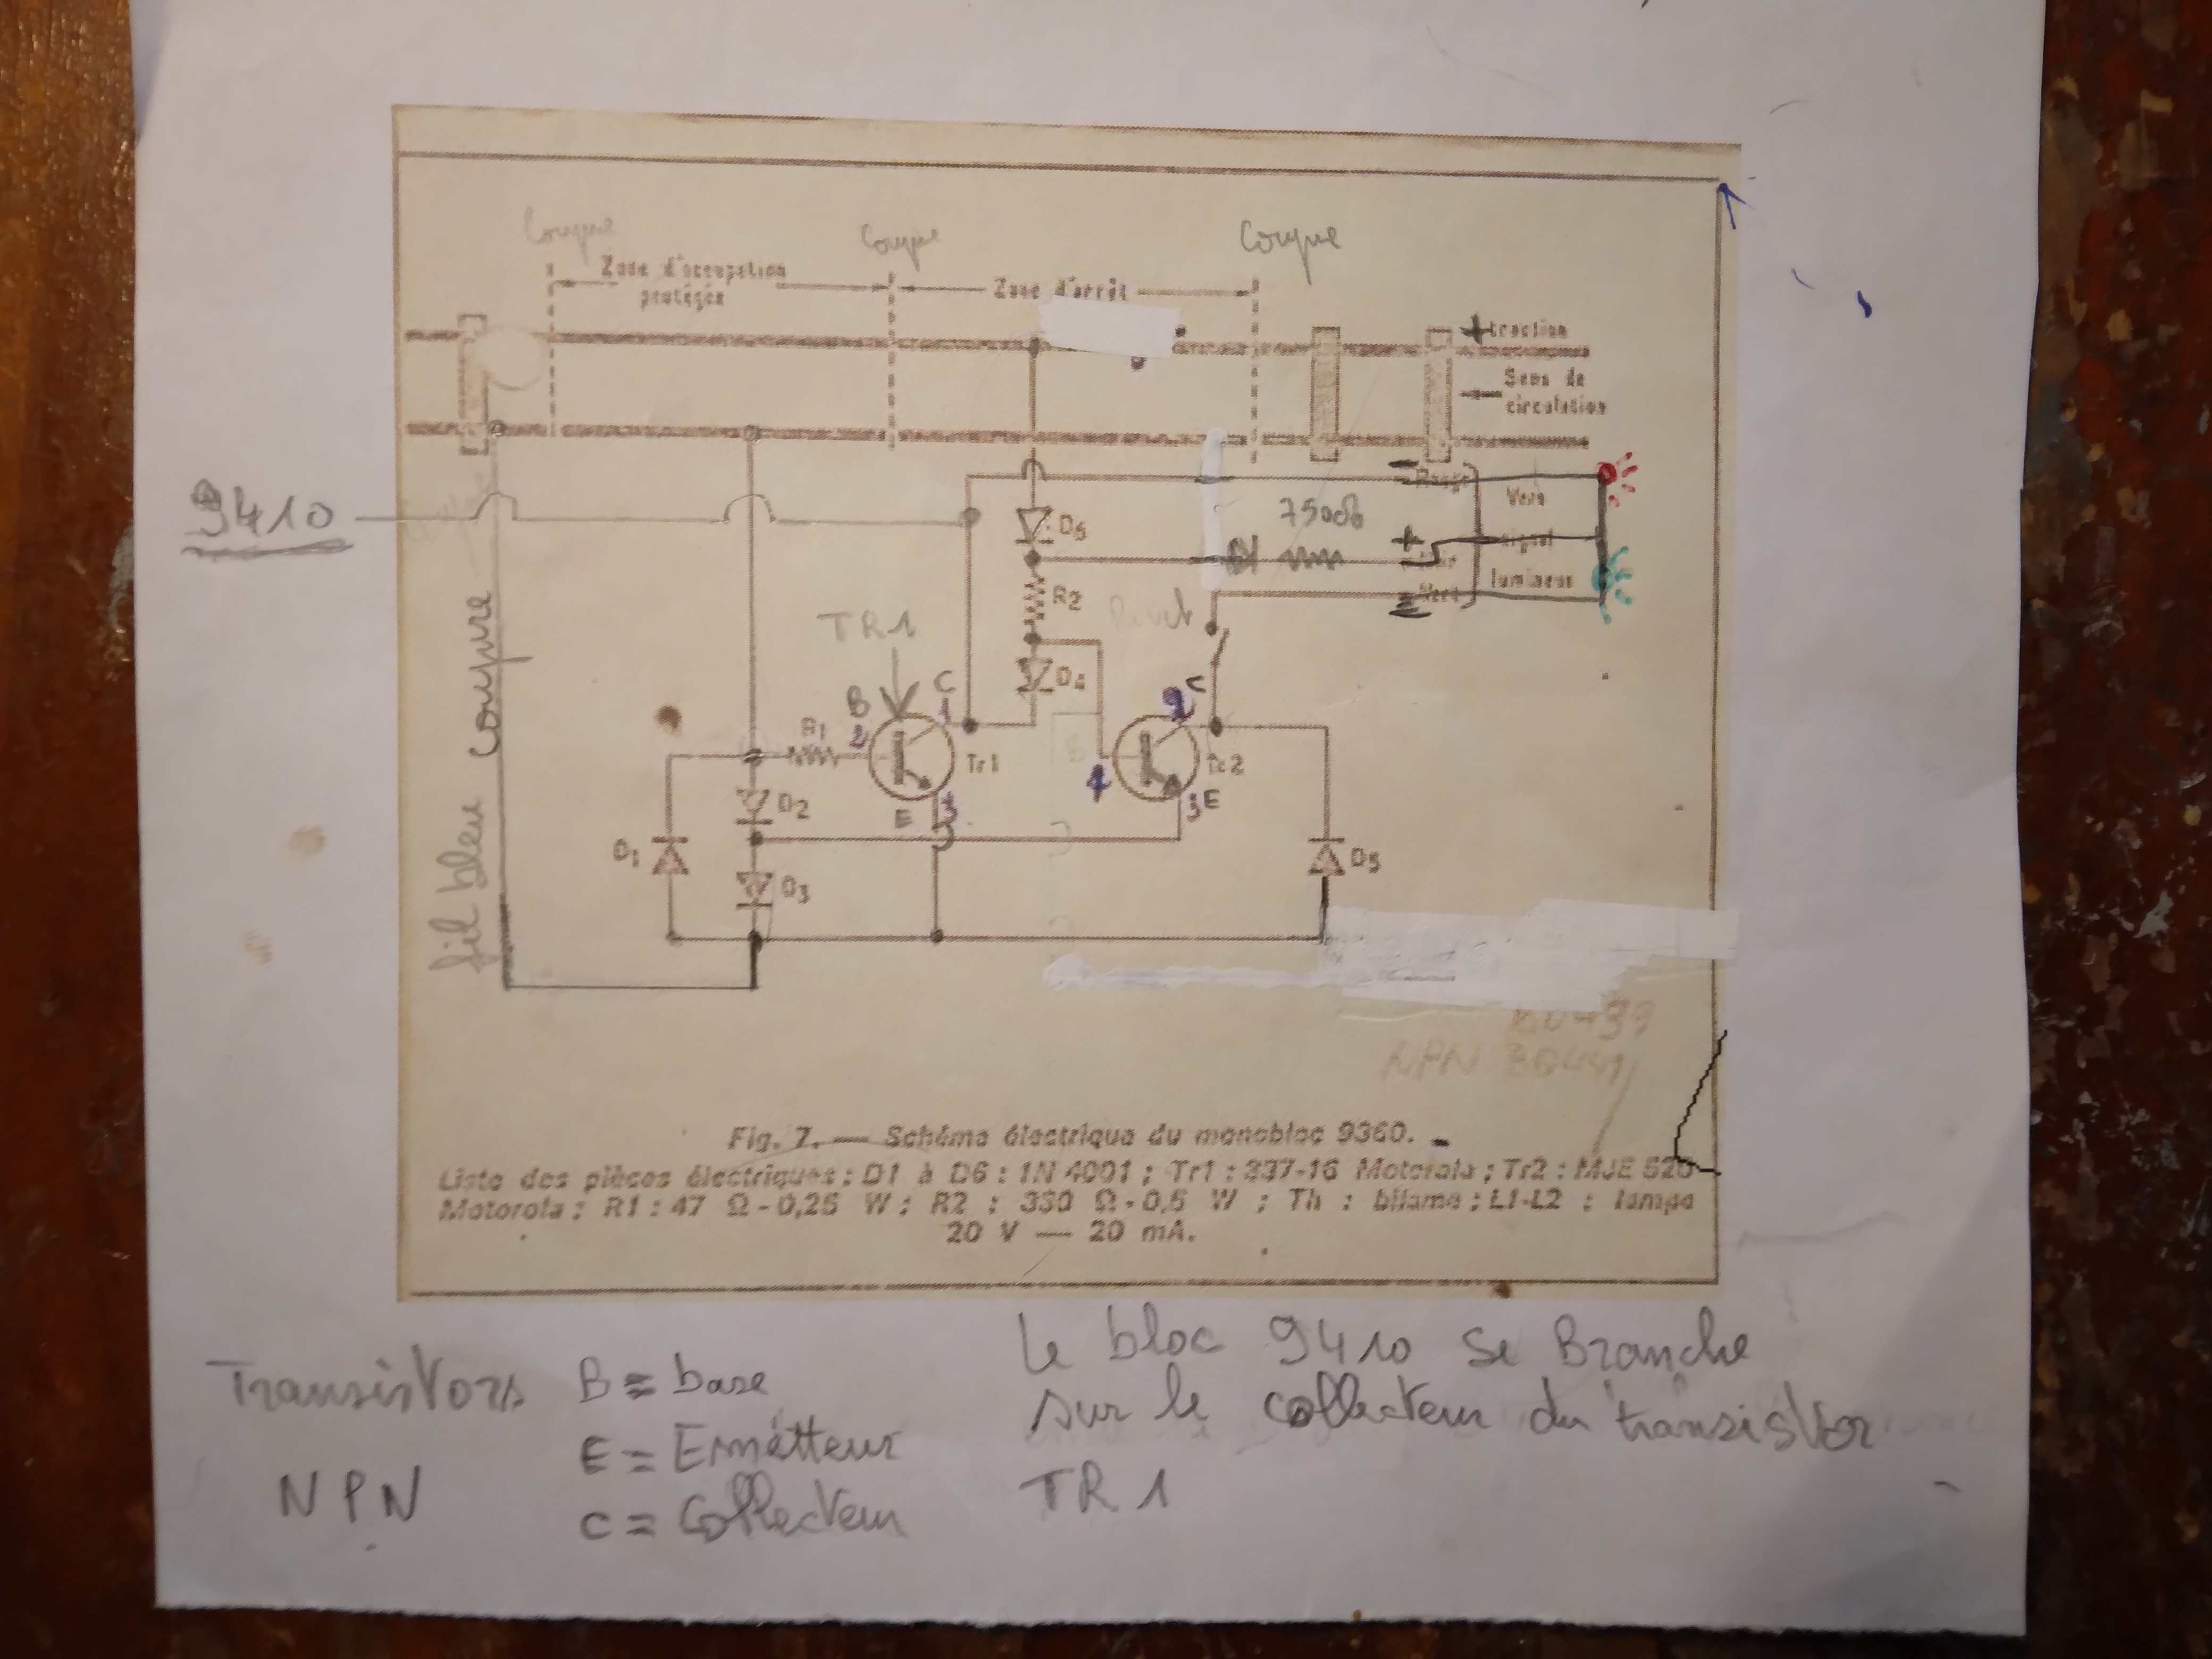 Coupe Coupe Coupe
Zone d'occupation
protégée
Zone d'arrêt
+ traction
Sens de
circulation
9410
- Rouge
Vers
750
D6
+ Noir
signal
R2
lumineux
- Vert
TR1
fil bleu coupure
D4
B
C
1
2
C
R1
2
Tr1
1
Tr2
E
3
3 E
D2
D1
D3
D5
NPN BD441
Fig. 7. — Schéma électrique du monobloc 9360.
Liste des pièces électriques : D1 à D6 : 1N 4001 ; Tr1 : 337-16 Motorola ; Tr2 : MJE 520
Motorola ; R1 : 47 Ω - 0,25 W ; R2 : 330 Ω - 0,5 W ; Th : bilame ; L1-L2 : lampe
20 V — 20 mA.
Transistors
B = base
E = Emétteur
NPN
C = Collecteur
Le bloc 9410 se Branche
sur le collecteur du transistor
TR 1